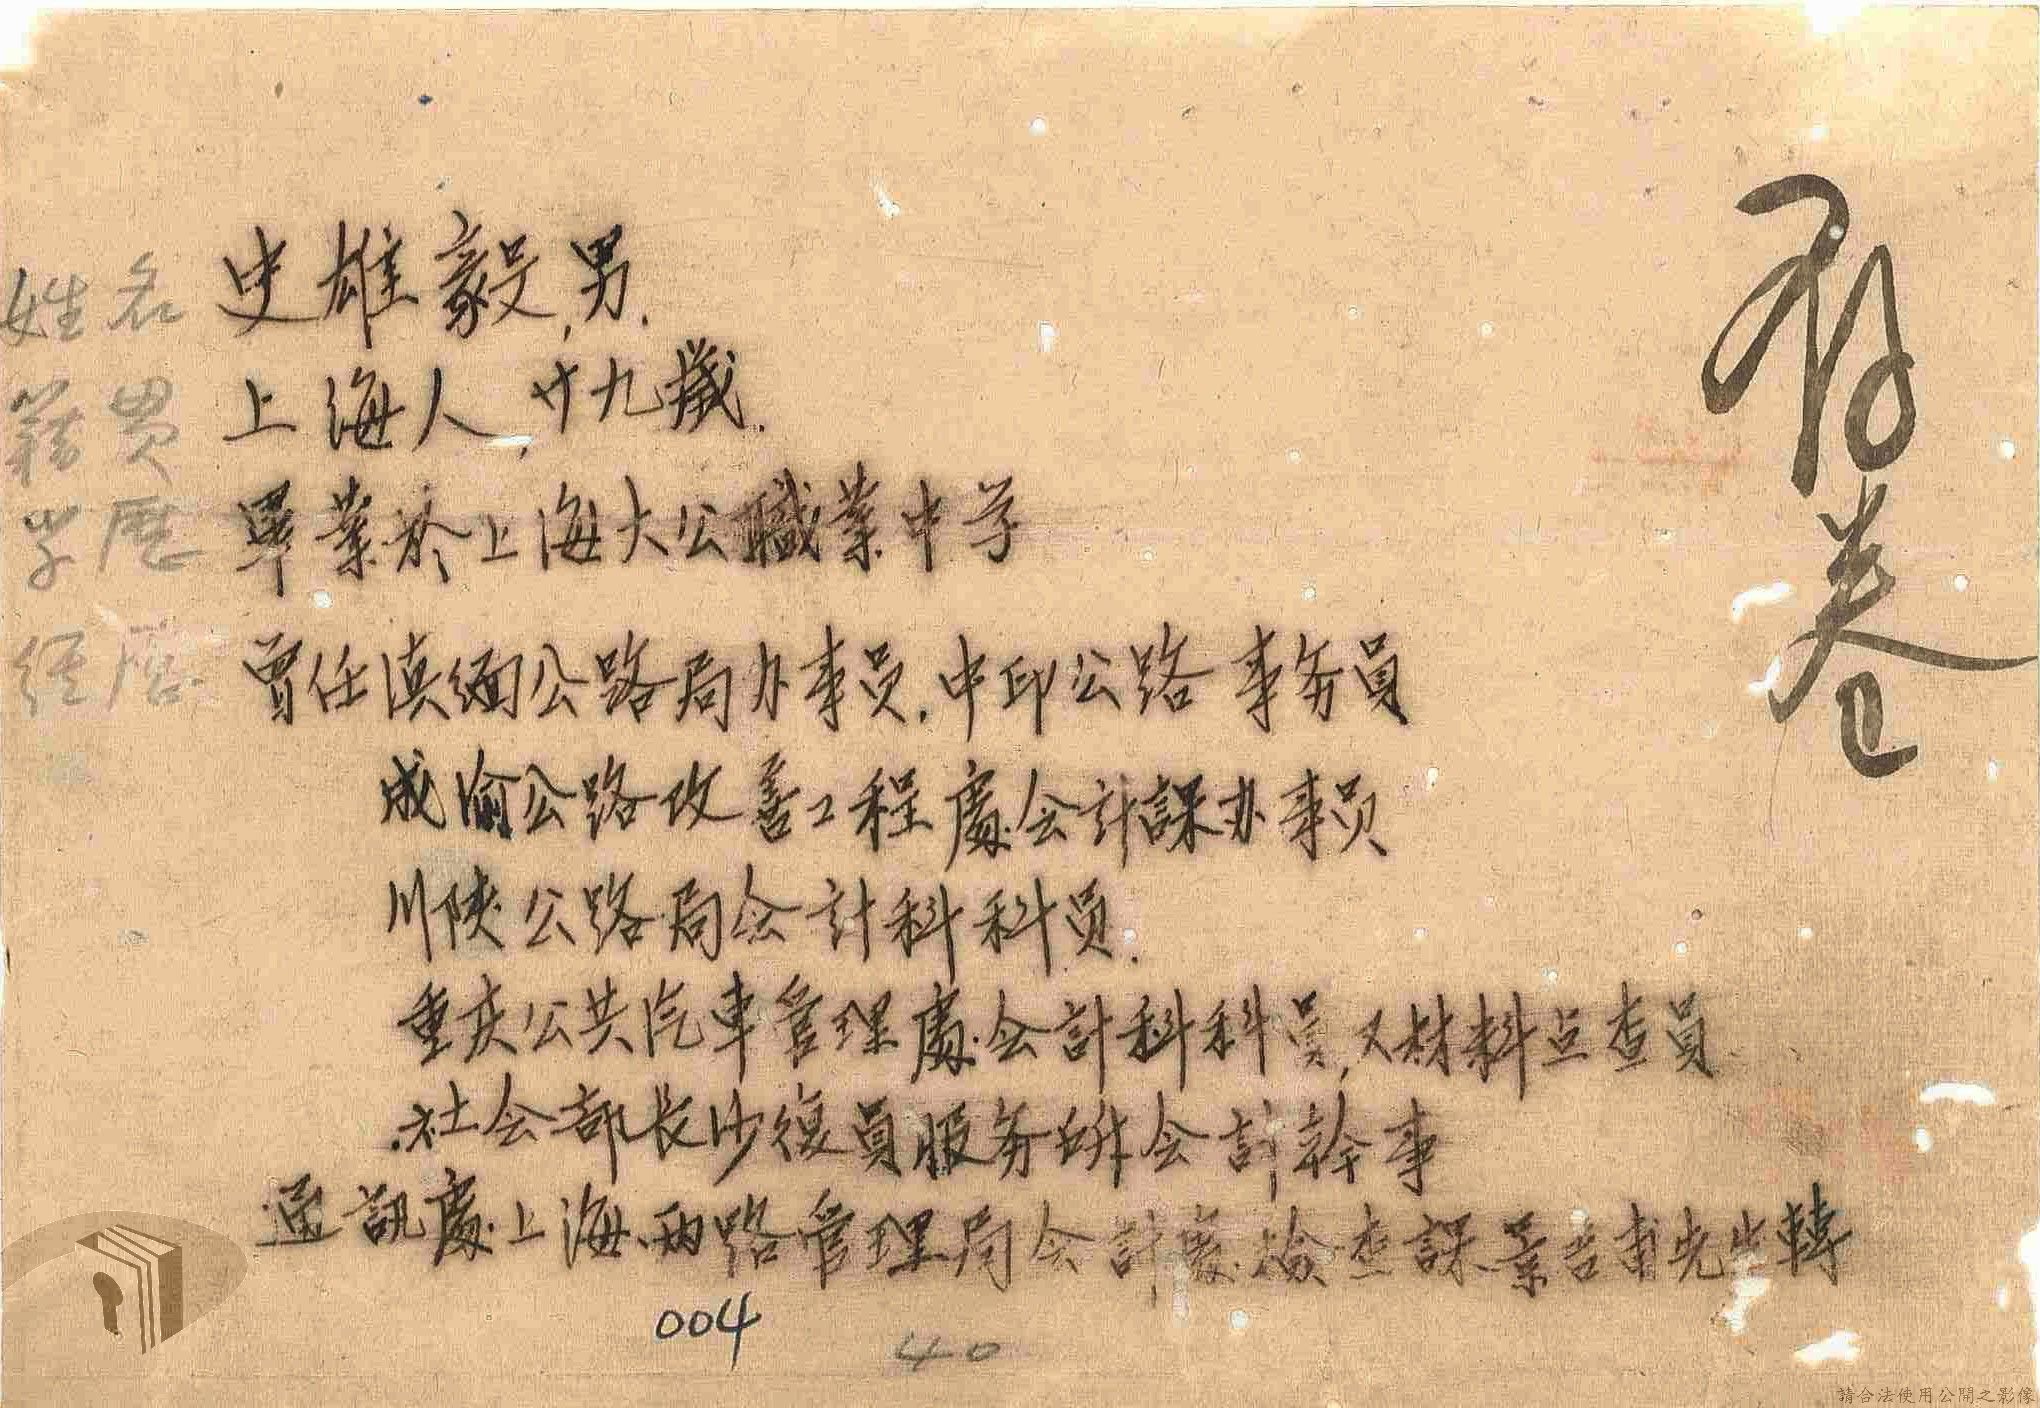 存卷
姓名 史雄毅，男．
籍貫 上海人，廿九歲．
学歷 畢業於上海大公職業中学
經歷 曾任滇緬公路局办事員．中印公路事务員
成渝公路改善工程處会計課办事员
川陕公路局会計科科员．
重庆公共汽車管理處会計科科員，又材料点查員
社会部長沙復員服务站会計幹事
通訊處．上海、両路管理局会計處檢查課葉吉甫先生轉
004
40
請合法使用公開之影像